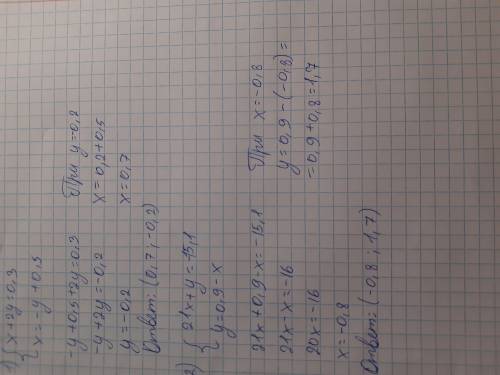 1) { x+2y=0,3
x=-y+0,5
-y+0,5+2y=0,3
-y+2y=-0,2
y=-0,2
При y=-0,2
x=0,2+0,5
x=0,7
Ответ: (0,7; -0,2)
2) { 21x+y=-15,1
y=0,9-x
21x+0,9-x=-15,1
21x-x=-16
20x=-16
x=-0,8
При x=-0,8
y=0,9-(-0,8)=
=0,9+0,8=1,7
Ответ: (-0,8; 1,7)